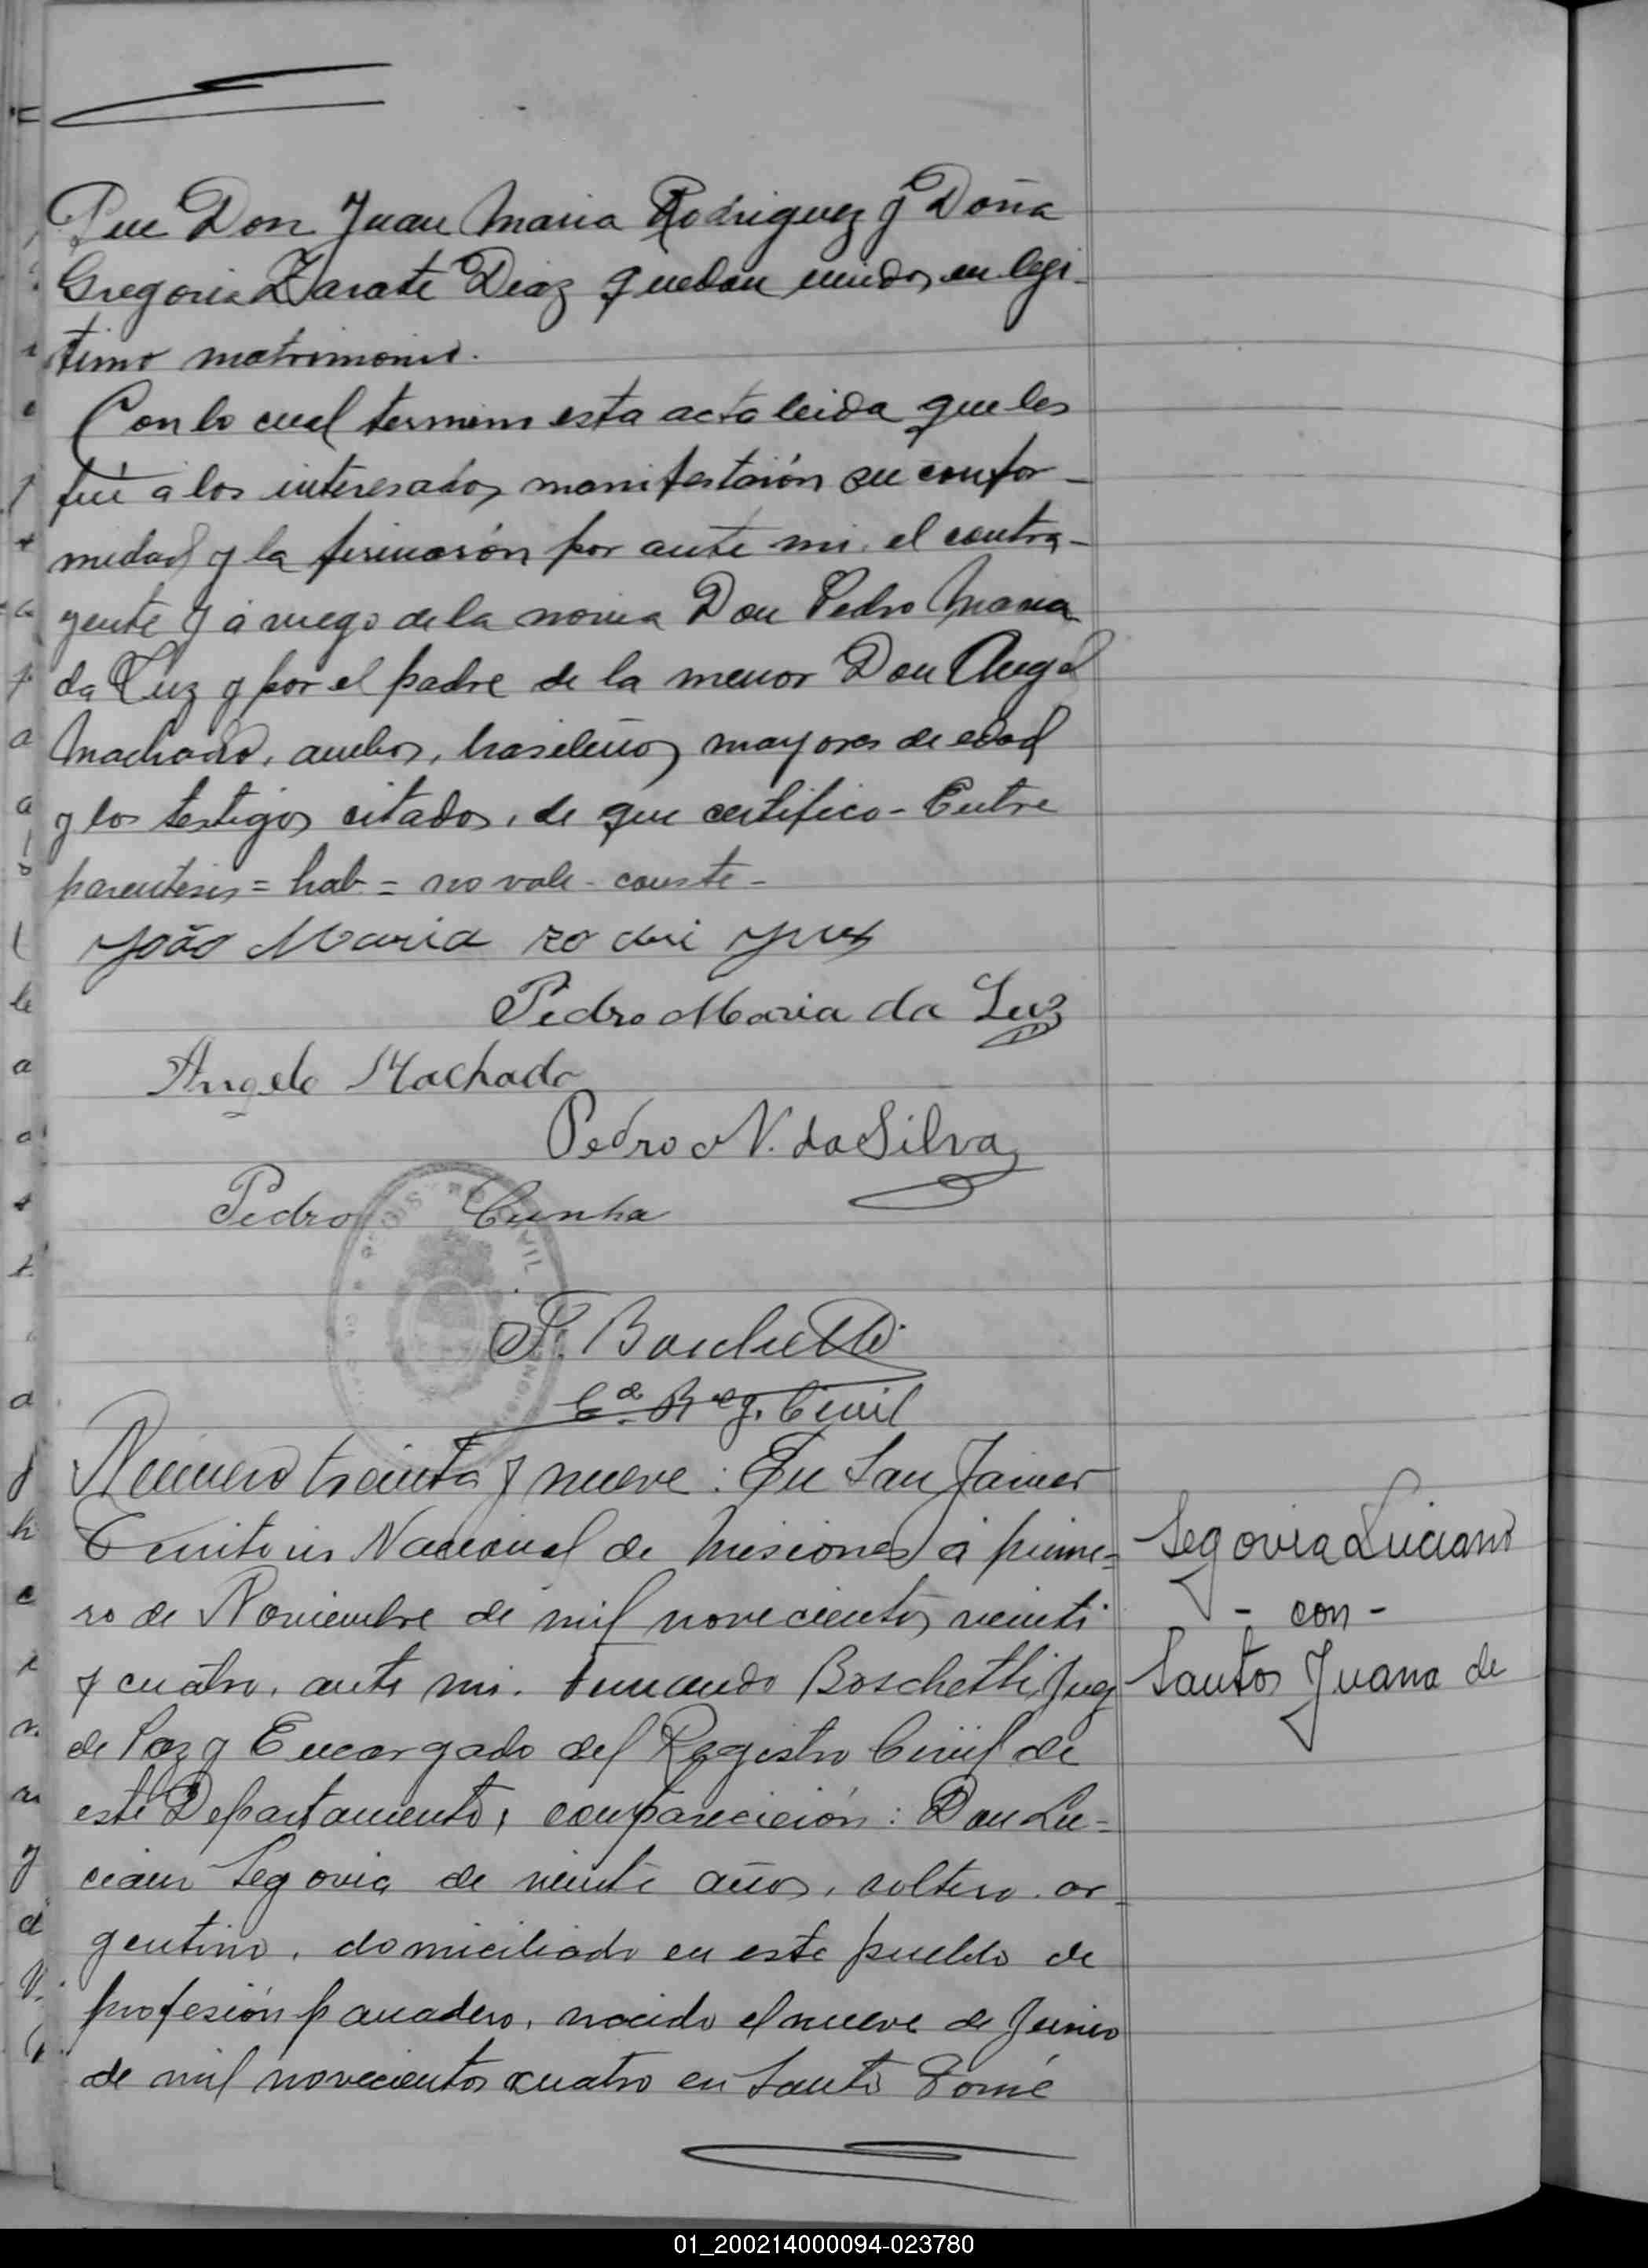 Que Don Juan Maria Rodriguez y Doña
Gregoria Zarate Diaz quedan unidos en legi-
timo matrimonio.
Con lo cual termino esta acta leida que les
fué a los interesados manifestarón su confor-
midad y la firmarón por ante mi. el contra-
yente y á ruego de la novia Don Pedro Maria
da Luz y por el padre de la menor Don Angel
Machado, ambos, brasileños mayores de edad
y los testigos citados, de que certifico - Entre
parentesis = hab = no vale - conste -
João Maria rodri gues
Pedro Maria da Luz
Angelo Machado
Pedro N. da Silva
Pedro Cunha
REGISTRO CIVIL
F. Boschetti
Edo. Reg. Civil
Numero treinta y nueve : En San Javier
Territorio Nacional de Misiones á prime-
ro de Noviembre de mil novecientos veinti
y cuatro, ante mi. Fernando Boschetti, Juez
de Paz y Encargado del Registro Civil de
este Departamento, comparecición : Don Lu-
ciano Segovia de veinte años, soltero. ar-
gentino, domiciliado en este pueblo de
profesión panadero, nacido el nueve de Junio
de mil novecientos cuatro en Santo Tomé
Segovia Luciano
- con -
Santos Juana de
01_200214000094-023780